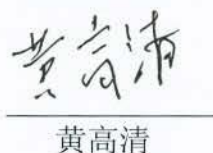 黄高清
黄高清